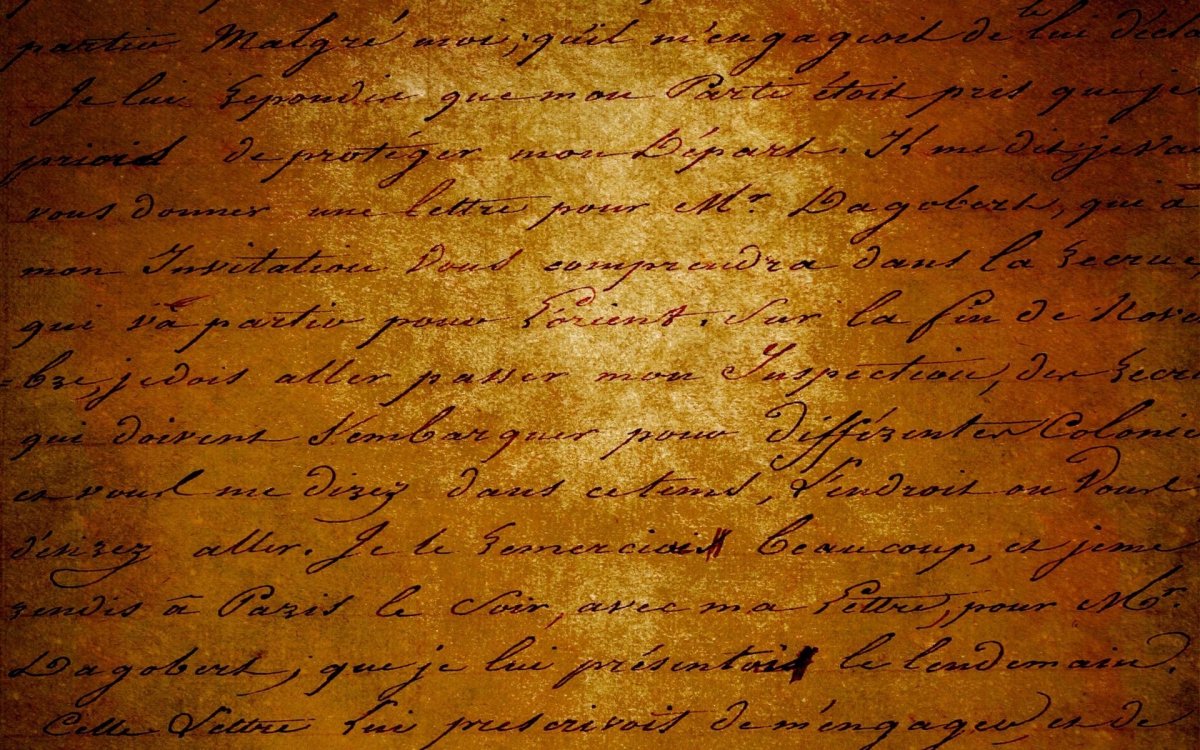 partir Malgré moi; qu'il m'engageoit de lui décla
Je lui Repondis que mon Parti étoit pris que je
priois de protéger mon Départ. Il me dit; je vai
vous donner une lettre pour Mr. Dagobert, qui à
mon Invitation Vous comprendra dans la Recrue
qui va partir pour L'orient. Sur la fin de Nove
=bre, je dois aller passer mon Inspection, des Recru
qui doivent s'embarquer pour différentes Colonie
et vous me direz dans ce tems, L'endroit ou Vous
désirez aller. Je le Remerciais beaucoup, et je me
rendis à Paris le Soir, avec ma Lettre, pour Mr.
Dagobert; que je lui présentais le lendemain.
Cette Lettre Lui prescrivoit de m'engager et de